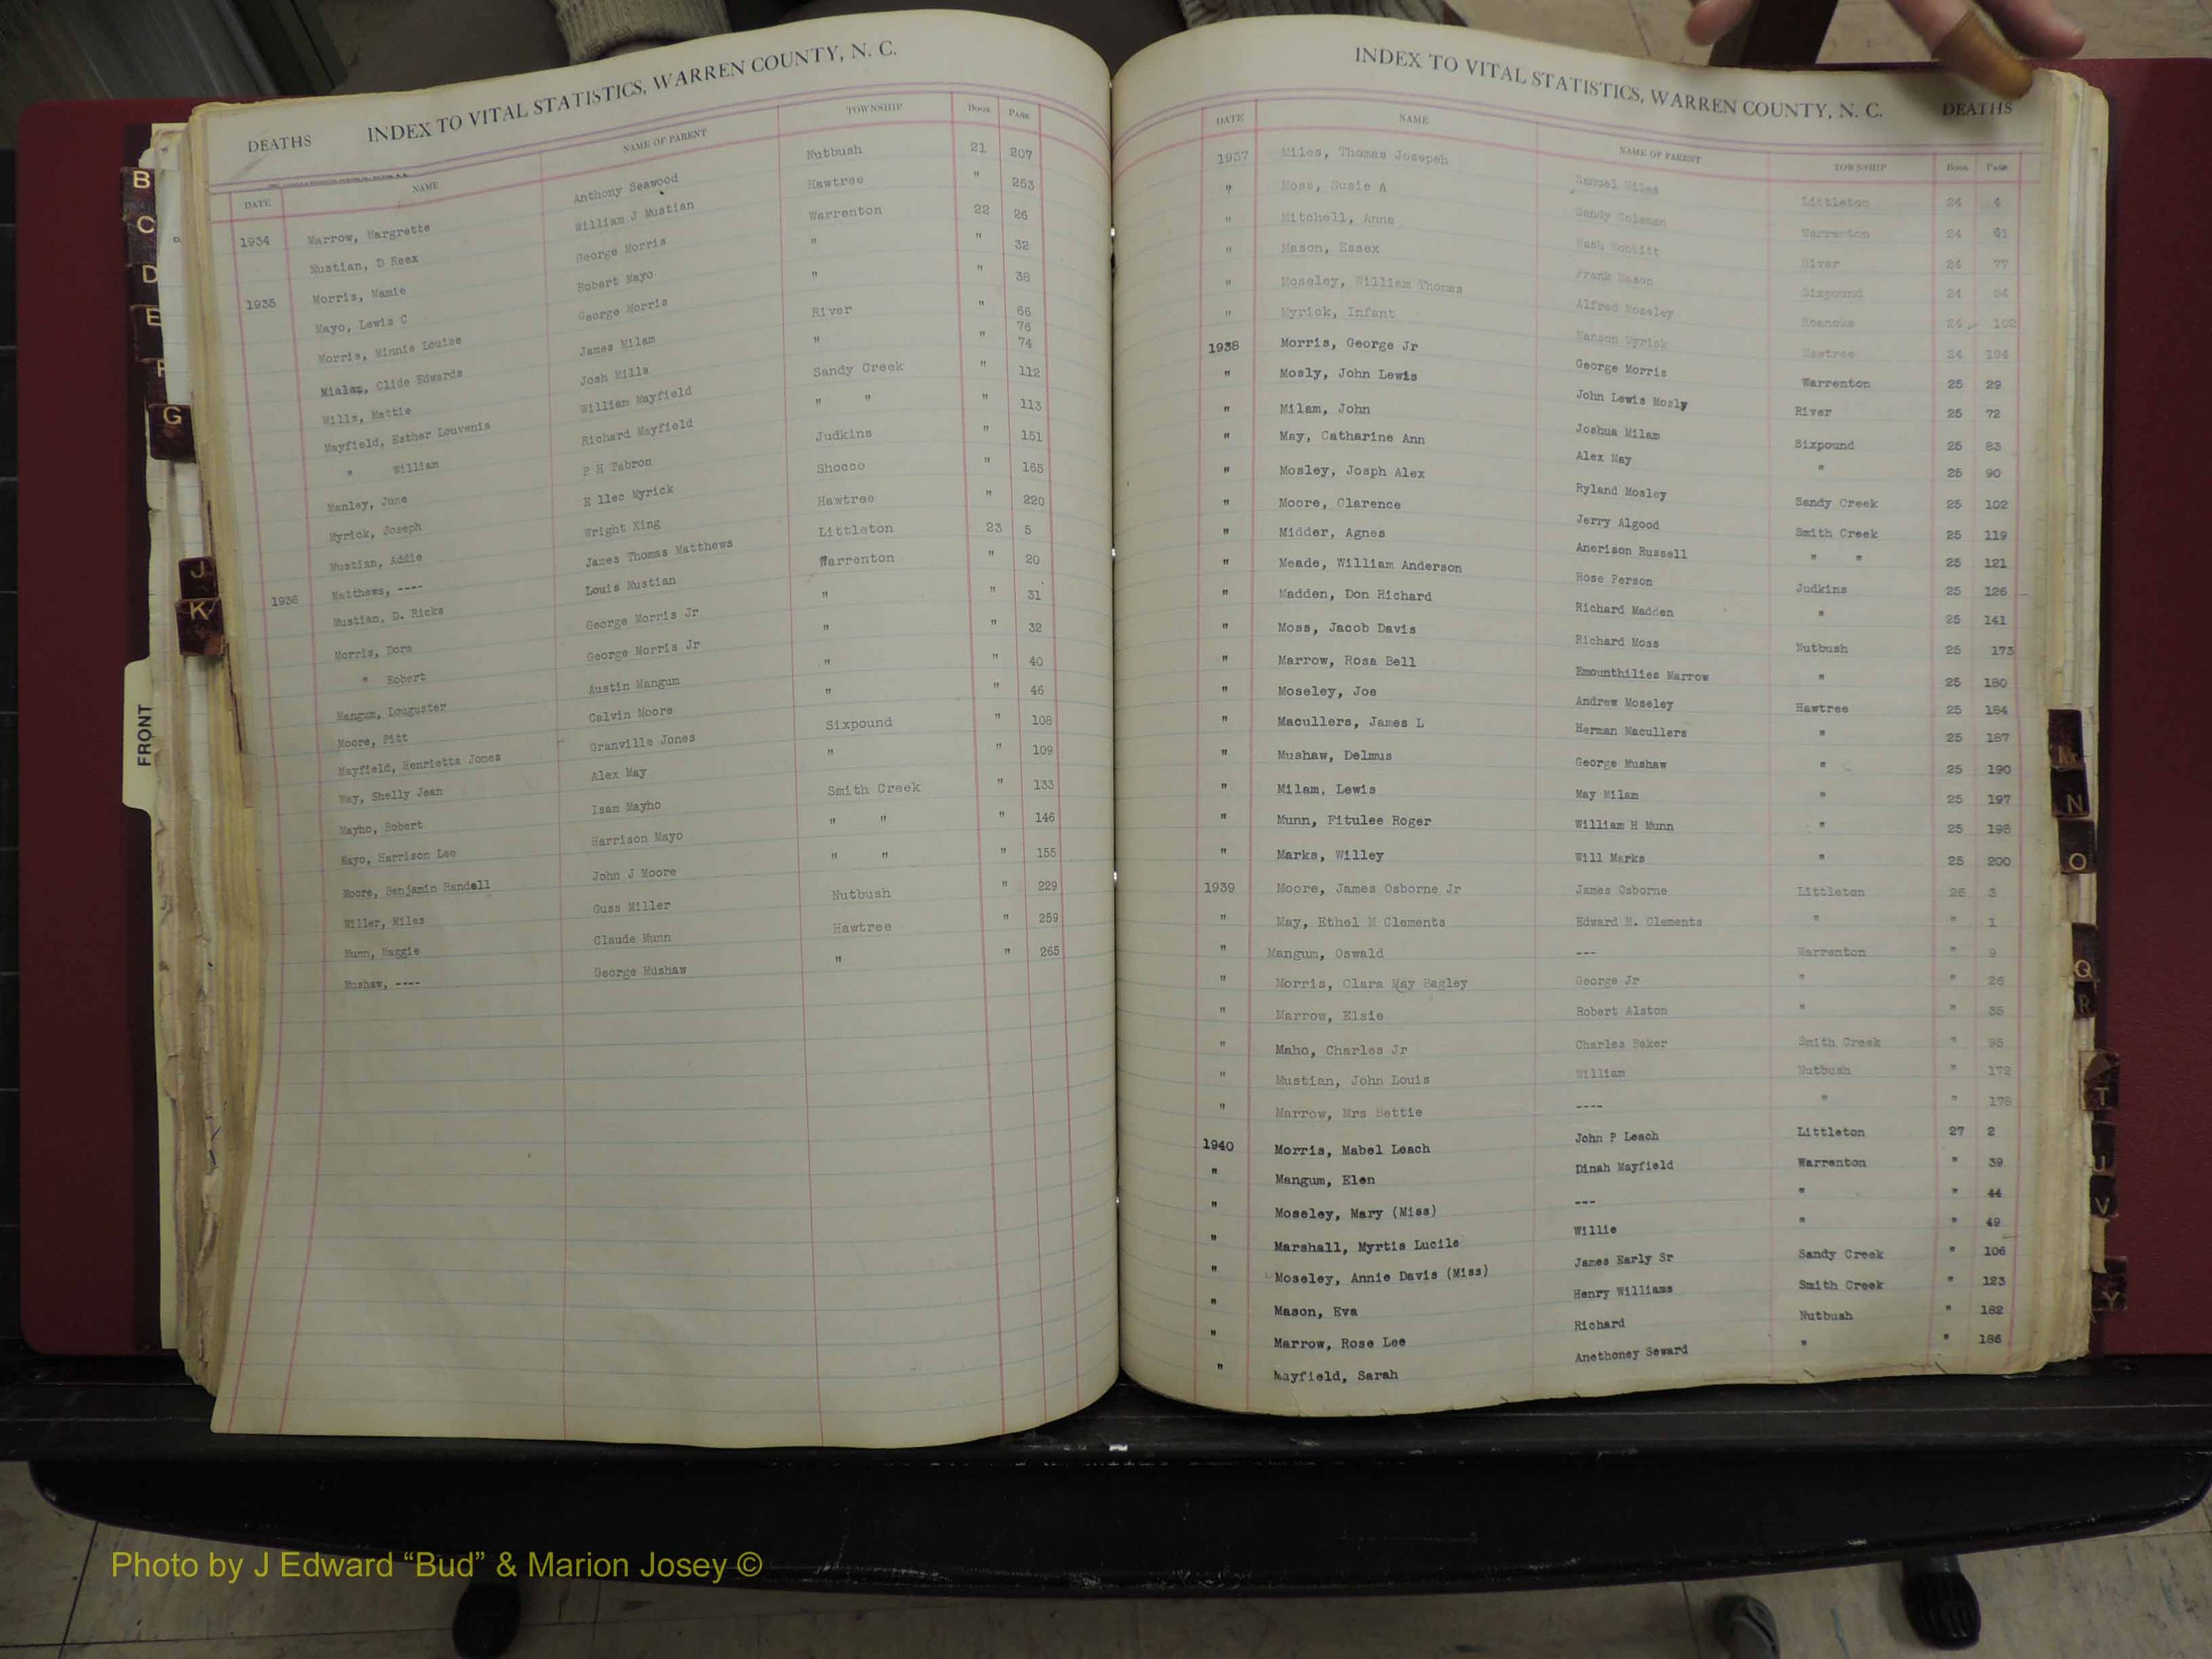 DEATHS INDEX TO VITAL STATISTICS, WARREN COUNTY, N. C.
DATE NAME NAME OF PARENT TOWNSHIP BOOK PAGE
1934 Marrow, Margrette Anthony Seawood Nutbush 21 207
Mustian, D Reex William J Mustian Hawtree " 253
1935 Morris, Mamie George Morris Warrenton 22 26
Mayo, Lewis C Robert Mayo " " 32
Morris, Minnie Louise George Morris " " 38
Mialam, Clide Edwards James Milam River " 66 76
Mills, Mattie Josh Mills " " 74
Mayfield, Esther Louvenia William Mayfield Sandy Creek " 112
" William Richard Mayfield " " " 113
Manley, June P H Tabron Judkins " 151
Myrick, Joseph E llec Myrick Shocco " 165
Mustian, Addie Wright King Hawtree " 220
1936 Matthews, ---- James Thomas Matthews Littleton 23 5
Mustian, D. Ricks Louis Mustian Warrenton " 20
Morris, Dora George Morris Jr " " 31
" Robert George Morris Jr " " 32
Mangum, Louguster Austin Mangum " " 40
Moore, Pitt Calvin Moore " " 46
Mayfield, Henrietta Jones Granville Jones Sixpound " 108
May, Shelly Jean Alex May " " 109
Mayho, Robert Isam Mayho Smith Creek " 133
Mayo, Harrison Leo Harrison Mayo " " " 146
Moore, Benjamin Randell John J Moore " " " 155
Miller, Miles Guss Miller Nutbush " 229
Munn, Maggie Claude Munn Hawtree " 259
Mushaw, ---- George Mushaw " " 265
INDEX TO VITAL STATISTICS, WARREN COUNTY, N. C. DEATHS
DATE NAME NAME OF PARENT TOWNSHIP BOOK PAGE
1937 Miles, Thomas Josepeh Samuel Miles Littleton 24 4
" Moss, Susie A Sandy Coleman Warrenton 24 61
" Mitchell, Anna Wash Bobbitt River 24 77
" Mason, Essex Frank Mason Sixpound 24 94
" Moseley, William Thomas Alfred Moseley Roanoke 24 102
" Myrick, Infant Manson Myrick Hawtree 24 194
1938 Morris, George Jr George Morris Warrenton 25 29
" Mosly, John Lewis John Lewis Mosly River 25 72
" Milam, John Joshua Milam Sixpound 25 83
" May, Catharine Ann Alex May " 25 90
" Mosley, Josph Alex Ryland Mosley Sandy Creek 25 102
" Moore, Clarence Jerry Algood Smith Creek 25 119
" Midder, Agnes Anerison Russell " " 25 121
" Meade, William Anderson Rose Person Judkins 25 126
" Madden, Don Richard Richard Madden " 25 141
" Moss, Jacob Davis Richard Moss Nutbush 25 173
" Marrow, Rosa Bell Emounthilies Marrow " 25 180
" Moseley, Joe Andrew Moseley Hawtree 25 184
" Macullers, James L Herman Macullers " 25 187
" Mushaw, Delmus George Mushaw " 25 190
" Milam, Lewis May Milam " 25 197
" Munn, Fitulee Roger William H Munn " 25 198
" Marks, Willey Will Marks " 25 200
1939 Moore, James Osborne Jr James Osborne Littleton 26 3
" May, Ethel M Clements Edward M. Clements " " 1
" Mangum, Oswald --- Warrenton " 9
" Morris, Clara May Bagley George Jr " " 26
" Marrow, Elsie Robert Alston " " 35
" Maho, Charles Jr Charles Baker Smith Creek " 95
" Mustian, John Louis William Nutbush " 172
" Marrow, Mrs Bettie ---- " " 175
1940 Morris, Mabel Leach John P Leach Littleton 27 2
" Mangum, Elen Dinah Mayfield Warrenton " 39
" Moseley, Mary (Miss) --- " " 44
" Marshall, Myrtis Lucile Willie " " 49
" Moseley, Annie Davis (Miss) James Early Sr Sandy Creek " 106
" Mason, Eva Henry Williams Smith Creek " 123
" Marrow, Rose Lee Richard Nutbush " 182
" Mayfield, Sarah Anethoney Seward " " 186
B
C
D
E
F
G
J
K
FRONT
M
N
O
Q
R
T
U
V
Y
Photo by J Edward “Bud” & Marion Josey ©